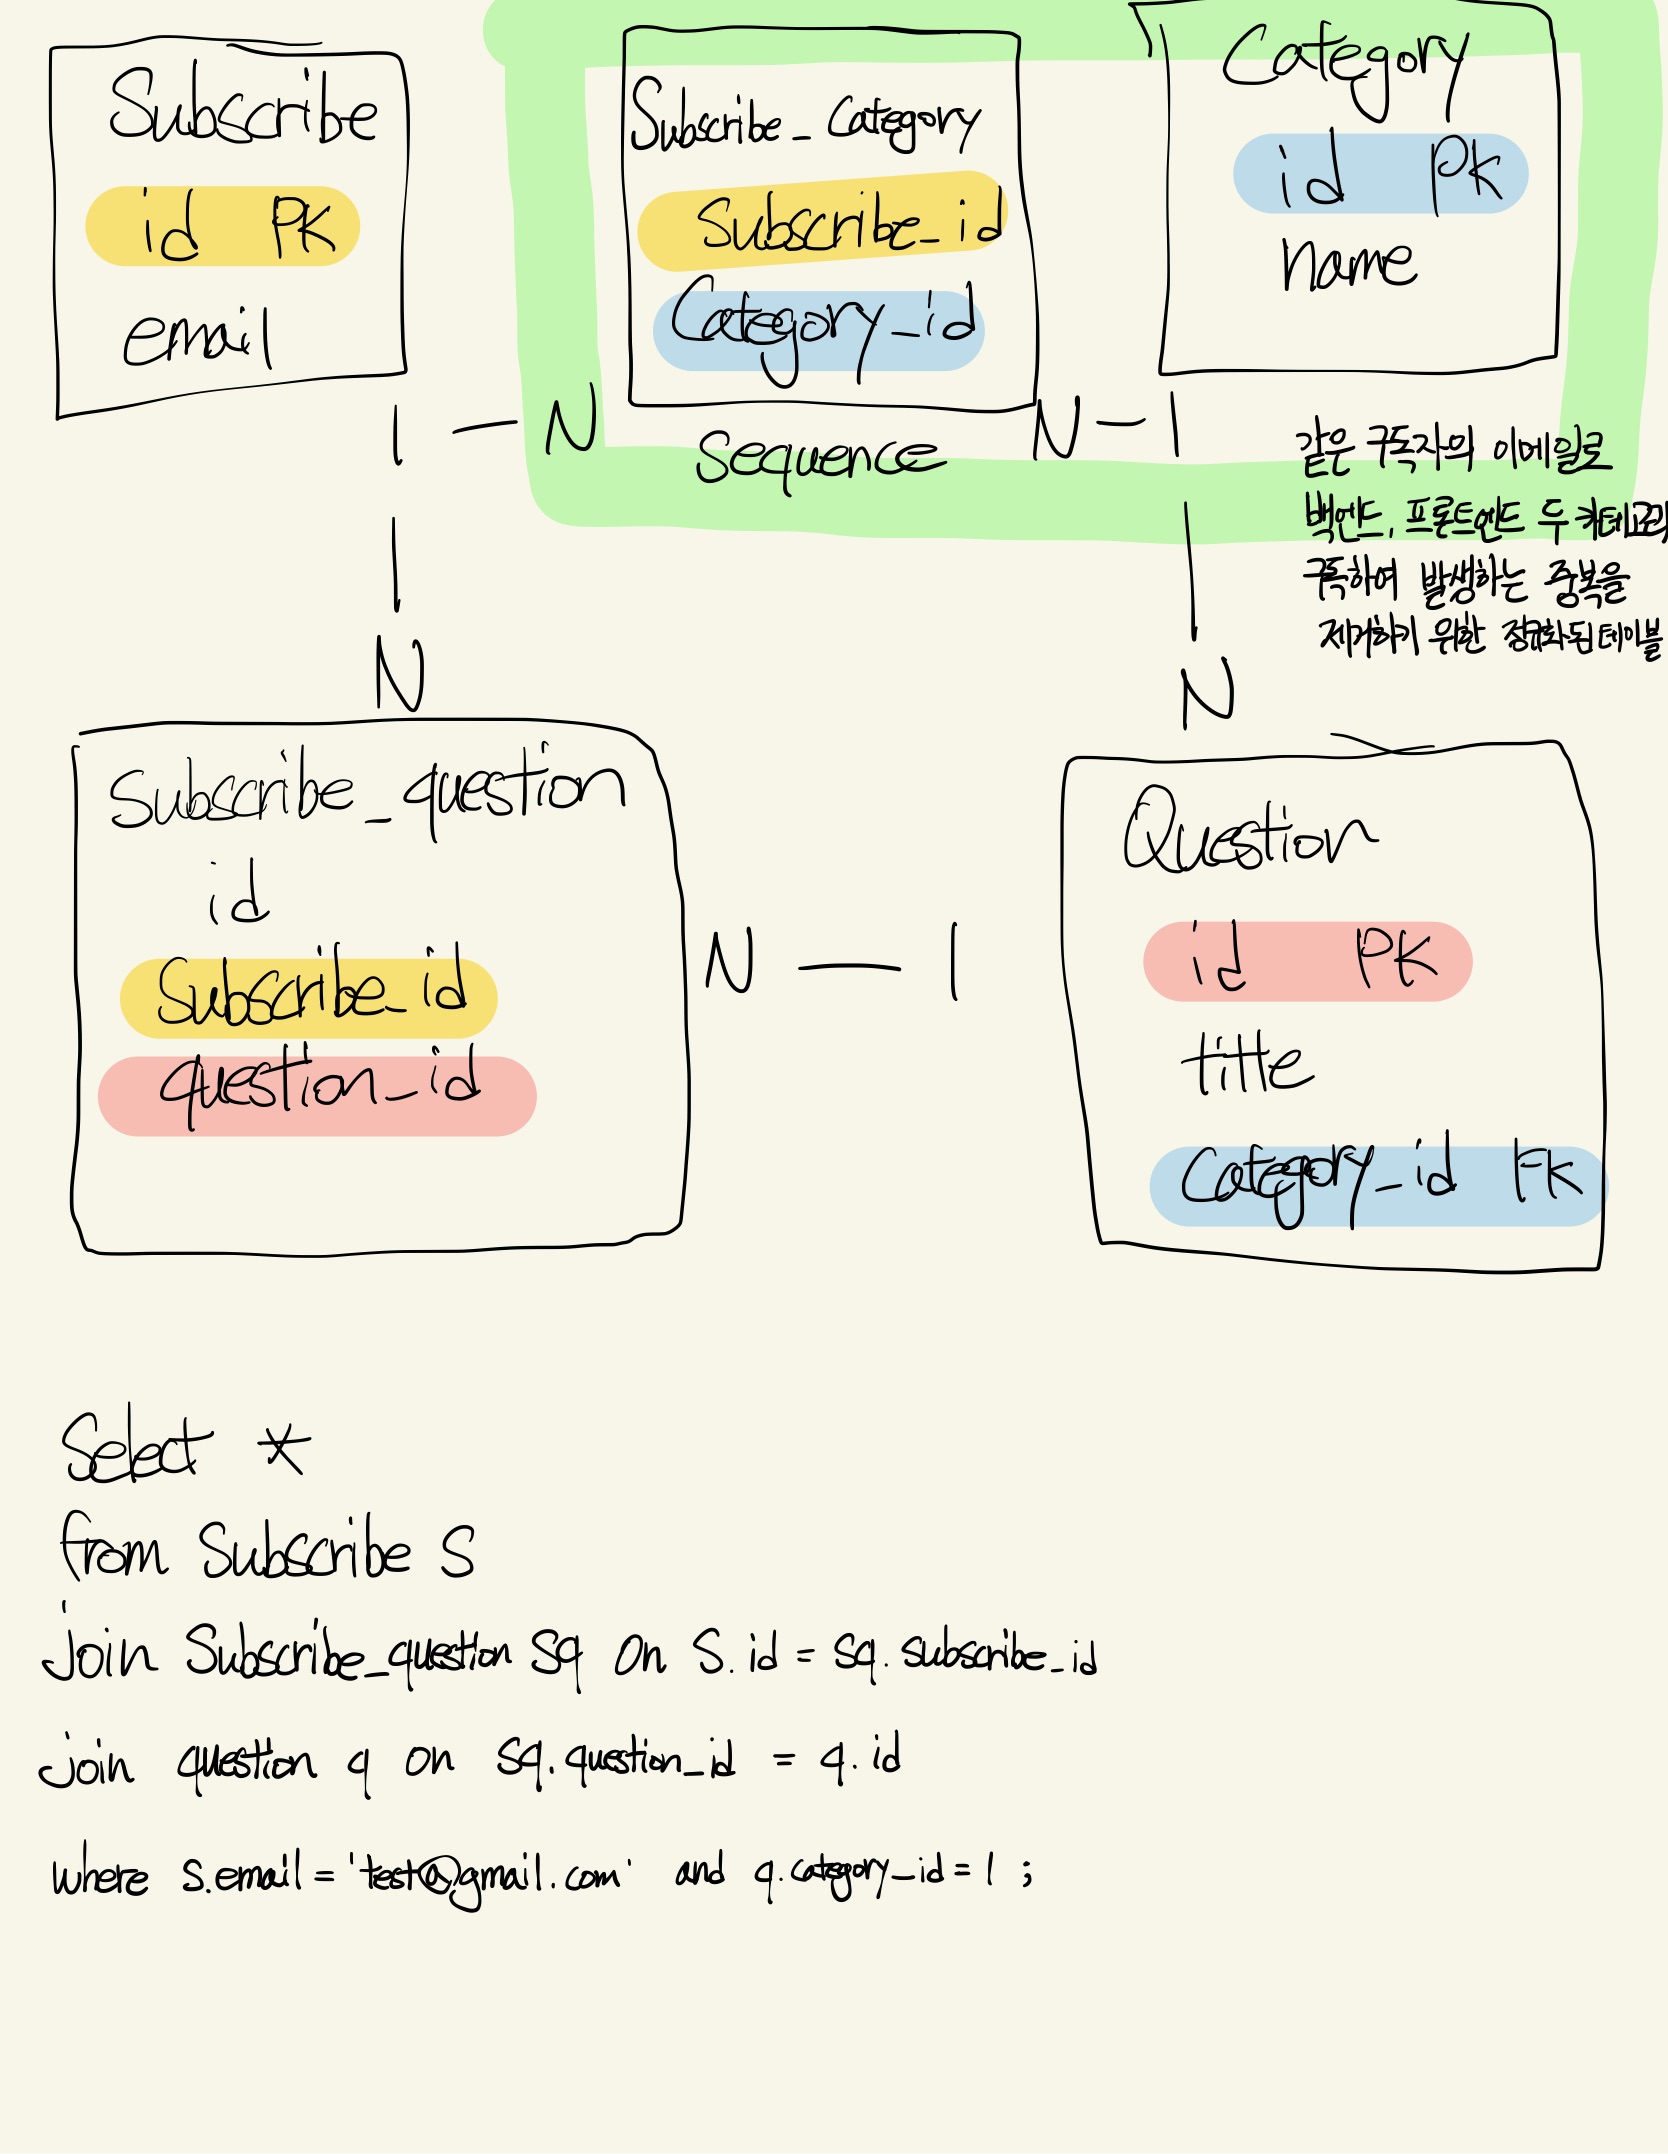 Subscribe
id PK
email
Subscribe_Category
Subscribe_id
Category_id
Sequence
Category
id PK
name
1 — N
N - 1
같은 구독자의 이메일로
백엔드, 프론트엔드 두 카테고리
구독하여 발생하는 중복을
제거하기 위한 정규화된 테이블
N
N
Subscribe_question
id
Subscribe_id
question_id
N — 1
Question
id PK
title
Category_id FK
Select *
from Subscribe S
join Subscribe_question Sq on S.id = sq.subscribe_id
join question q on sq.question_id = q.id
where s.email = 'test@gmail.com' and q.category_id = 1 ;